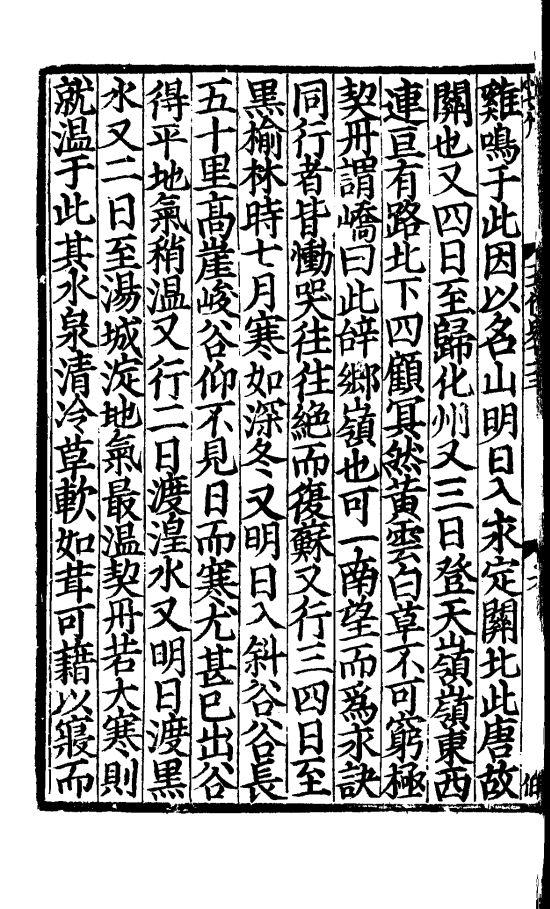 雞鳴于此因以名山明日入永定關北此唐故
關也又四日至歸化州又三日登天嶺嶺東西
連亘有路北下四顧冥然黃雲白草不可窮極
契丹謂嶠曰此辝鄉嶺也可一南望而爲永訣
同行者皆慟哭往往絕而復蘇又行三四日至
黑榆林時七月寒如深冬又明日入斜谷谷長
五十里高崖峻谷仰不見日而寒尤甚已出谷
得平地氣稍温又行二日渡湟水又明日渡黑
水又二日至湯城淀地氣最温契丹若大寒則
就温于此其水泉清冷草軟如茸可藉以寢而